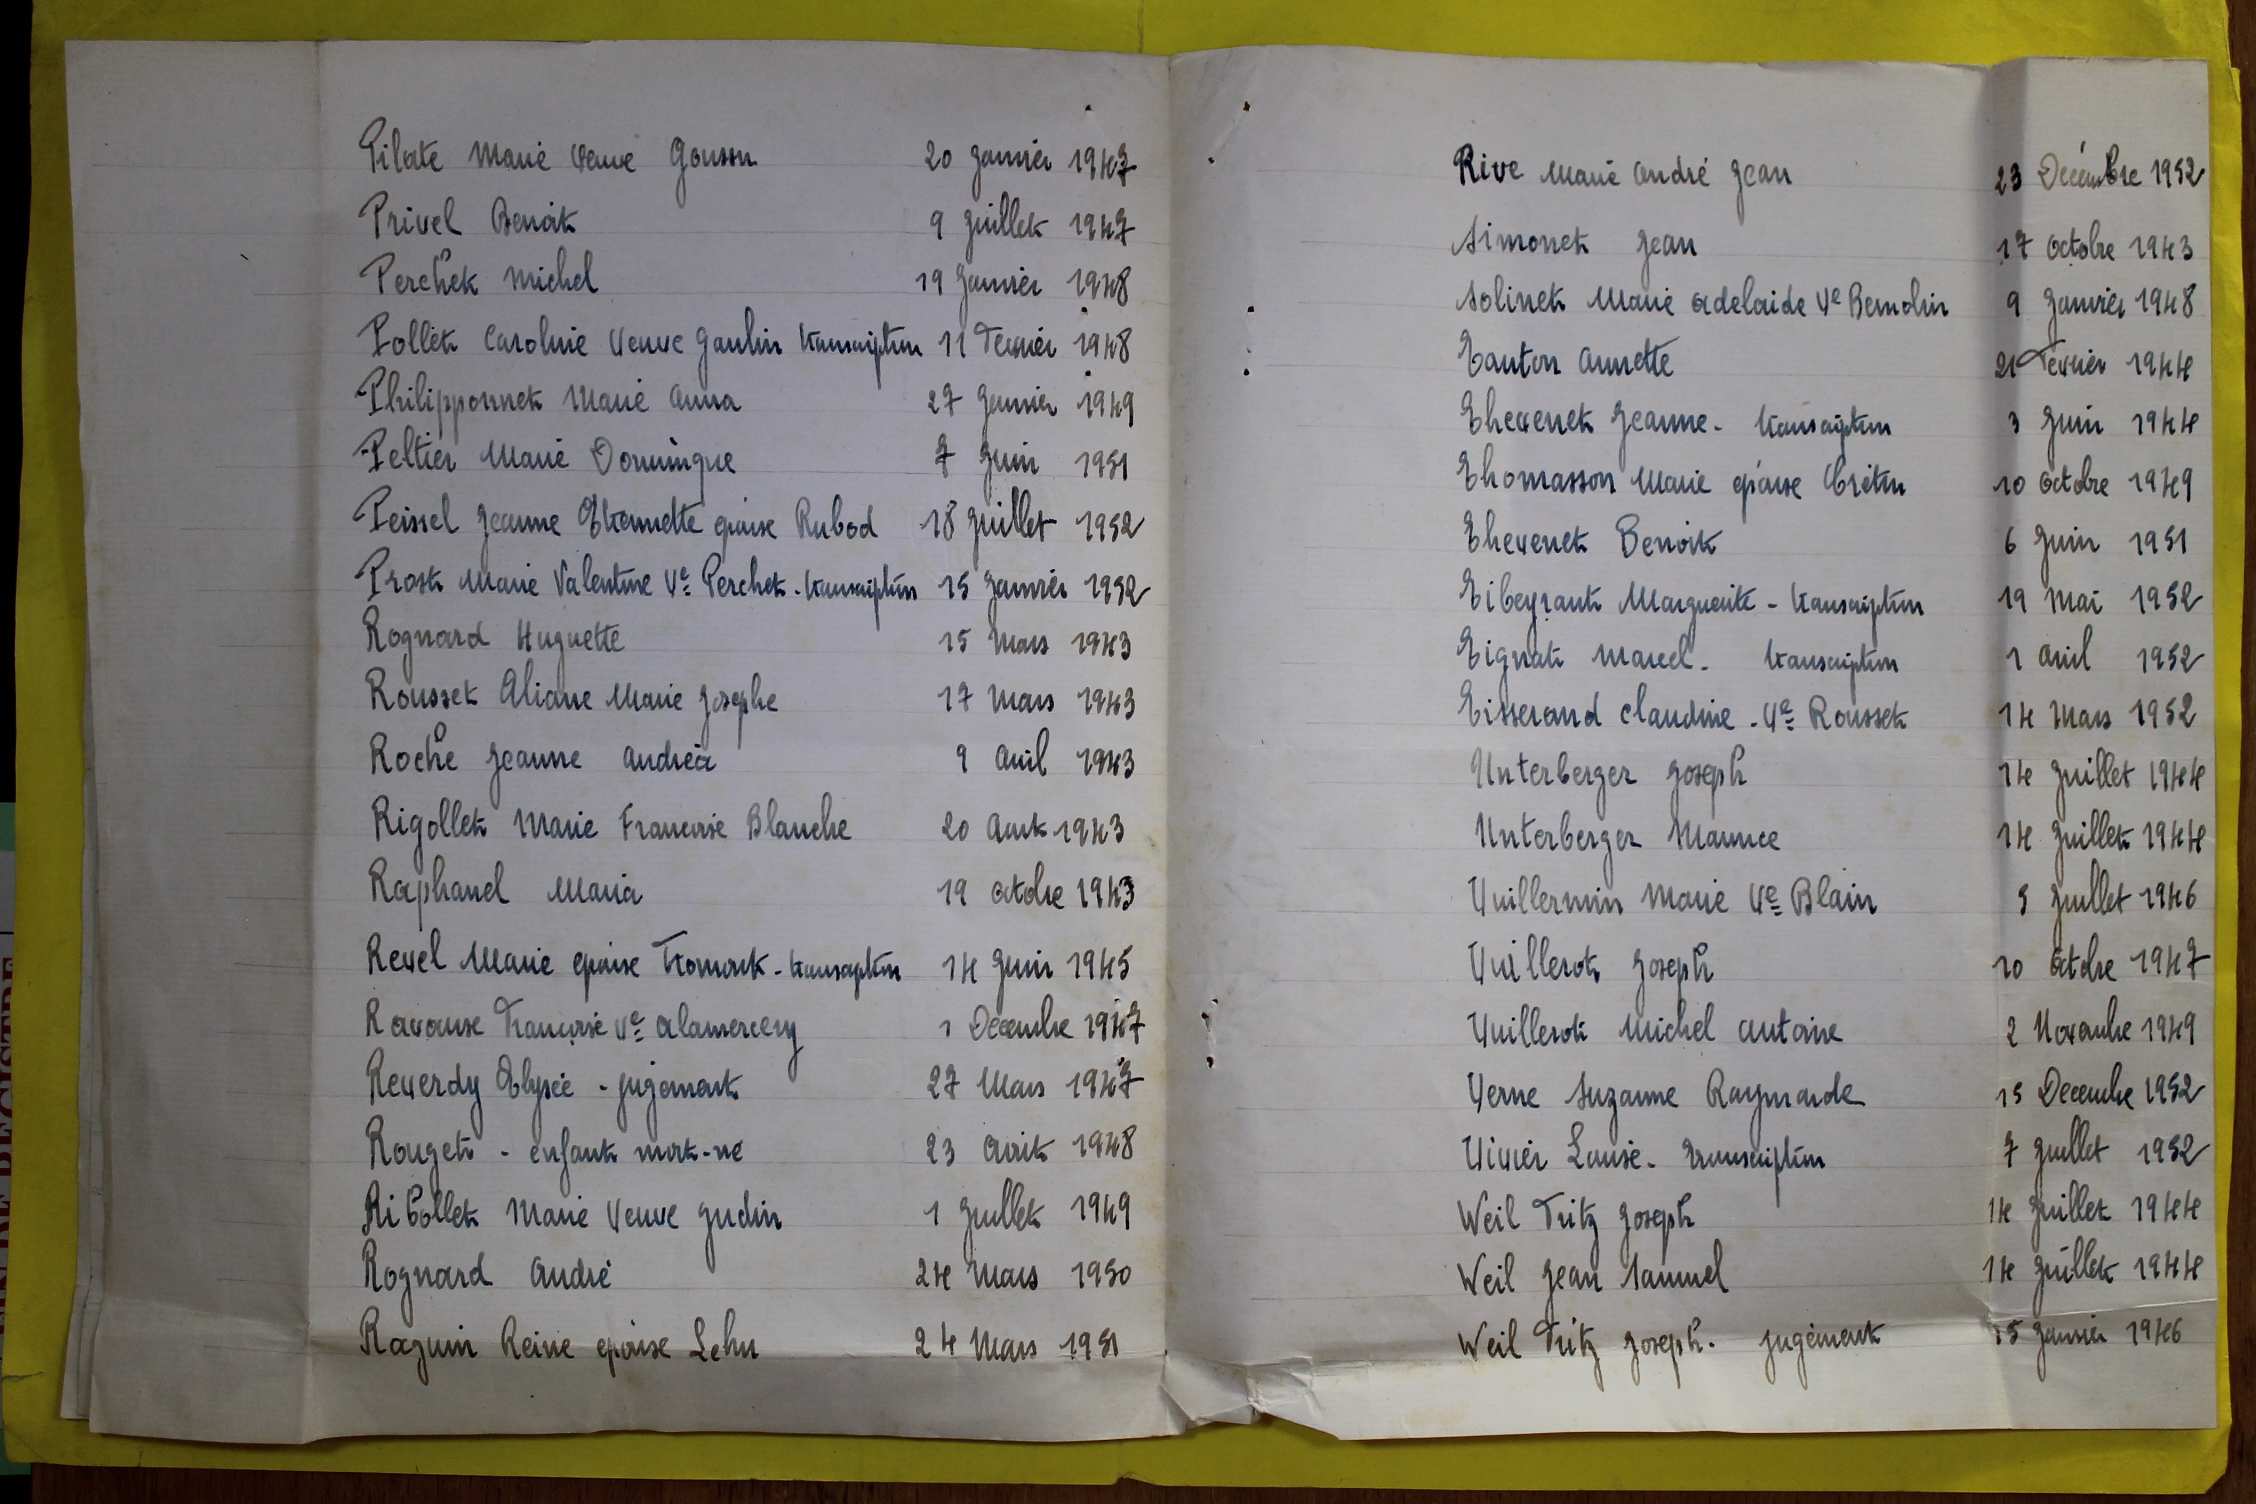 Pilate Marie Veuve Gousson 20 Janvier 1947
Privel Benoit 9 Juillet 1947
Perchet Michel 19 Janvier 1948
Pollet Caroline Veuve Gaulin transcription 11 Fevrier 1948
Philipponnet Marie Anna 27 Janvier 1949
Peltier Marie Dominique 7 Juin 1951
Peissel Jeanne Etiennette épouse Rubod 18 Juillet 1952
Prost Marie Valentine Ve Perchet - transcription 15 Janvier 1952
Rognard Huguette 15 Mars 1943
Rousset Aliane Marie Josephe 17 Mars 1943
Roche Jeanne Andréa 9 Avril 1943
Rigollet Marie Francoise Blanche 20 Aout 1943
Raphanel Maria 19 octobre 1943
Revel Marie epouse - transcription 14 Juin 1945
Ravouse Francoise Ve Alamercery 1 Decembre 1947
Reverdy Elysée - jugement 27 Mars 1947
Rouget - enfant mort-né 23 Aout 1948
Ribollet Marie Veuve Gudin 1 Juillet 1949
Rognard André 24 Mars 1950
Raguin Reine epouse Lehu 24 Mars 1951
Rive Marie André Jean 23 Decembre 1952
Simonet Jean 17 octobre 1943
Solinet Marie Adelaide Ve Bernolin 9 Janvier 1948
Tanton Annette 21 Fevrier 1944
Thevenet Jeanne - transcription 3 Juin 1944
Thomasson Marie épouse Crétin 10 octobre 1949
Thevenet Benoit 6 Juin 1951
Tibeyrant Marguerite - transcription 19 Mai 1952
Tignat Marcel - transcription 1 Avril 1952
Tisserand Claudine - Ve Rousset 14 Mars 1952
Unterberger Joseph 14 Juillet 1944
Unterberger Maurice 14 Juillet 1944
Vuillermin Marie Ve Blain 5 Juillet 1946
Vuillerot Joseph 10 octobre 1947
Vuillerot Michel Antoine 2 Novembre 1949
Verne Suzanne Raymonde 15 Decembre 1952
Vivier Louise - transcription 7 Juillet 1952
Weil Fritz Joseph 14 Juillet 1944
Weil Jean Samuel 14 Juillet 1944
Weil Fritz Joseph - jugement 15 Janvier 1946